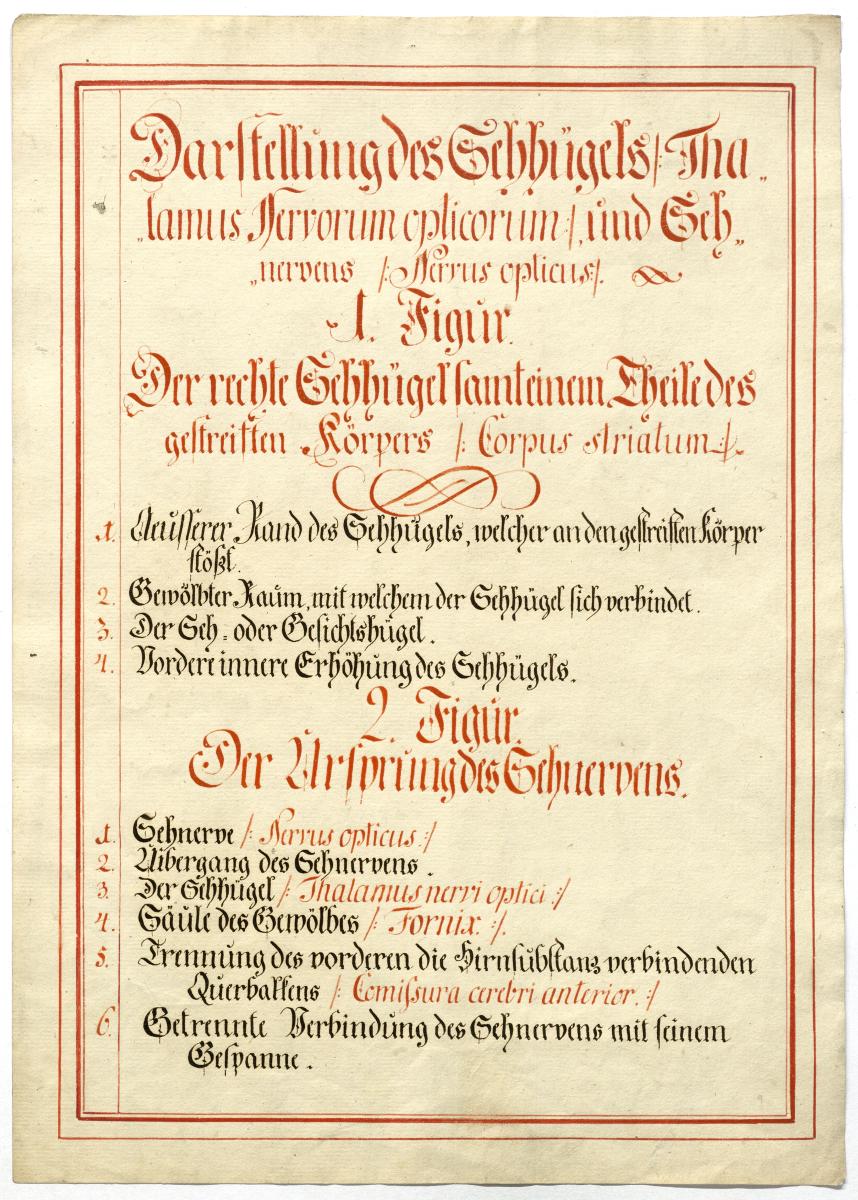 Darstellung des Sehhügels /: Tha„
„lamus Nervorum opticorum :/, und Seh„
„nervens /: Nervus opticus :/.
1. Figur.
Der rechte Sehhügel samt einem Theile des
gestreiften Körpers /: Corpus striatum :/.
1. Aeusserer Rand des Sehhügels, welcher an den gestreiften Körper
stößt.
2. Gewölbter Raum, mit welchem der Sehhügel sich verbindet.
3. Der Seh= oder Gesichtshügel.
4. Vordere innere Erhöhung des Sehhügels.
2. Figur.
Der Ursprung des Sehnervens.
1. Sehnerve /: Nervus opticus :/
2. Uibergang des Sehnervens.
3. Der Sehhügel /: Thalamus nervi optici :/
4. Säule des Gewölbes /: Fornix :/.
5. Trennung des vorderen die Hirnsubstanz verbindenden
Querbalkens /: Comissura cerebri anterior. :/
6. Getrennte Verbindung des Sehnervens mit seinem
Gespanne.